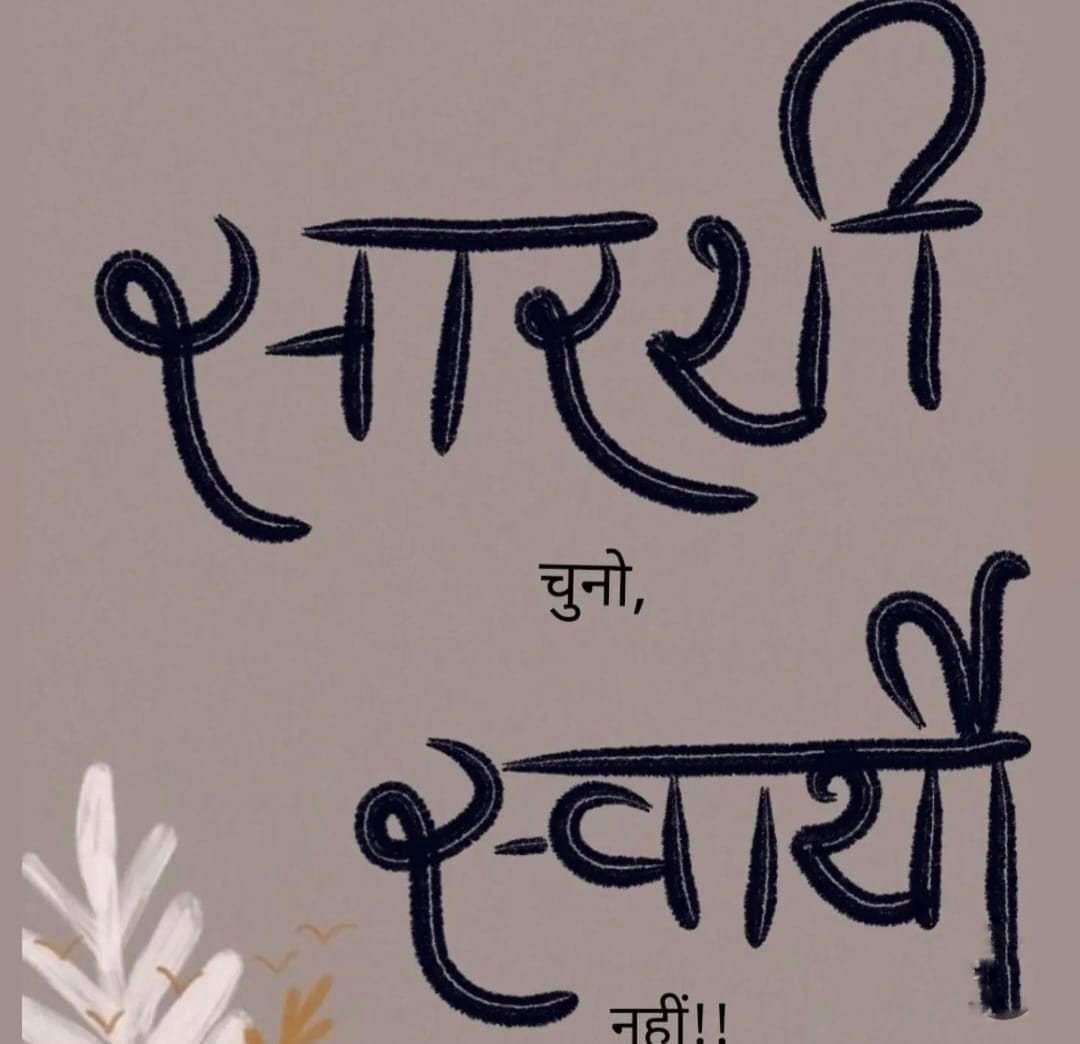 सारथी
चुनो,
स्वार्थी
नहीं!!